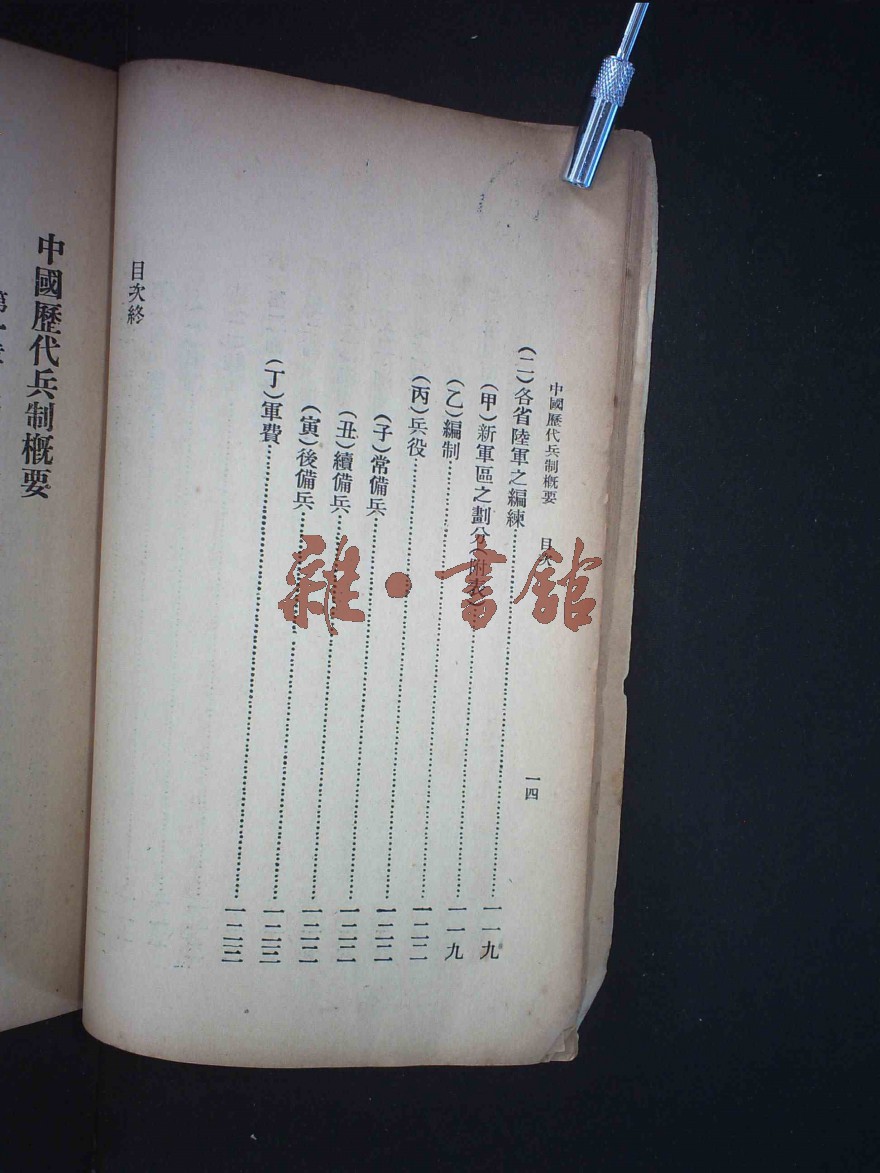 中國歷代兵制概要　目次　一四
（二）各省陸軍之編練……一一九
（甲）新軍區之劃分（附表）……一一九
（乙）編制……一二二
（丙）兵役……一二二
（子）常備兵……一二二
（丑）續備兵……一二二
（寅）後備兵……一二三
（丁）軍費……一二三
目次終
中國歷代兵制概要
雜·書館